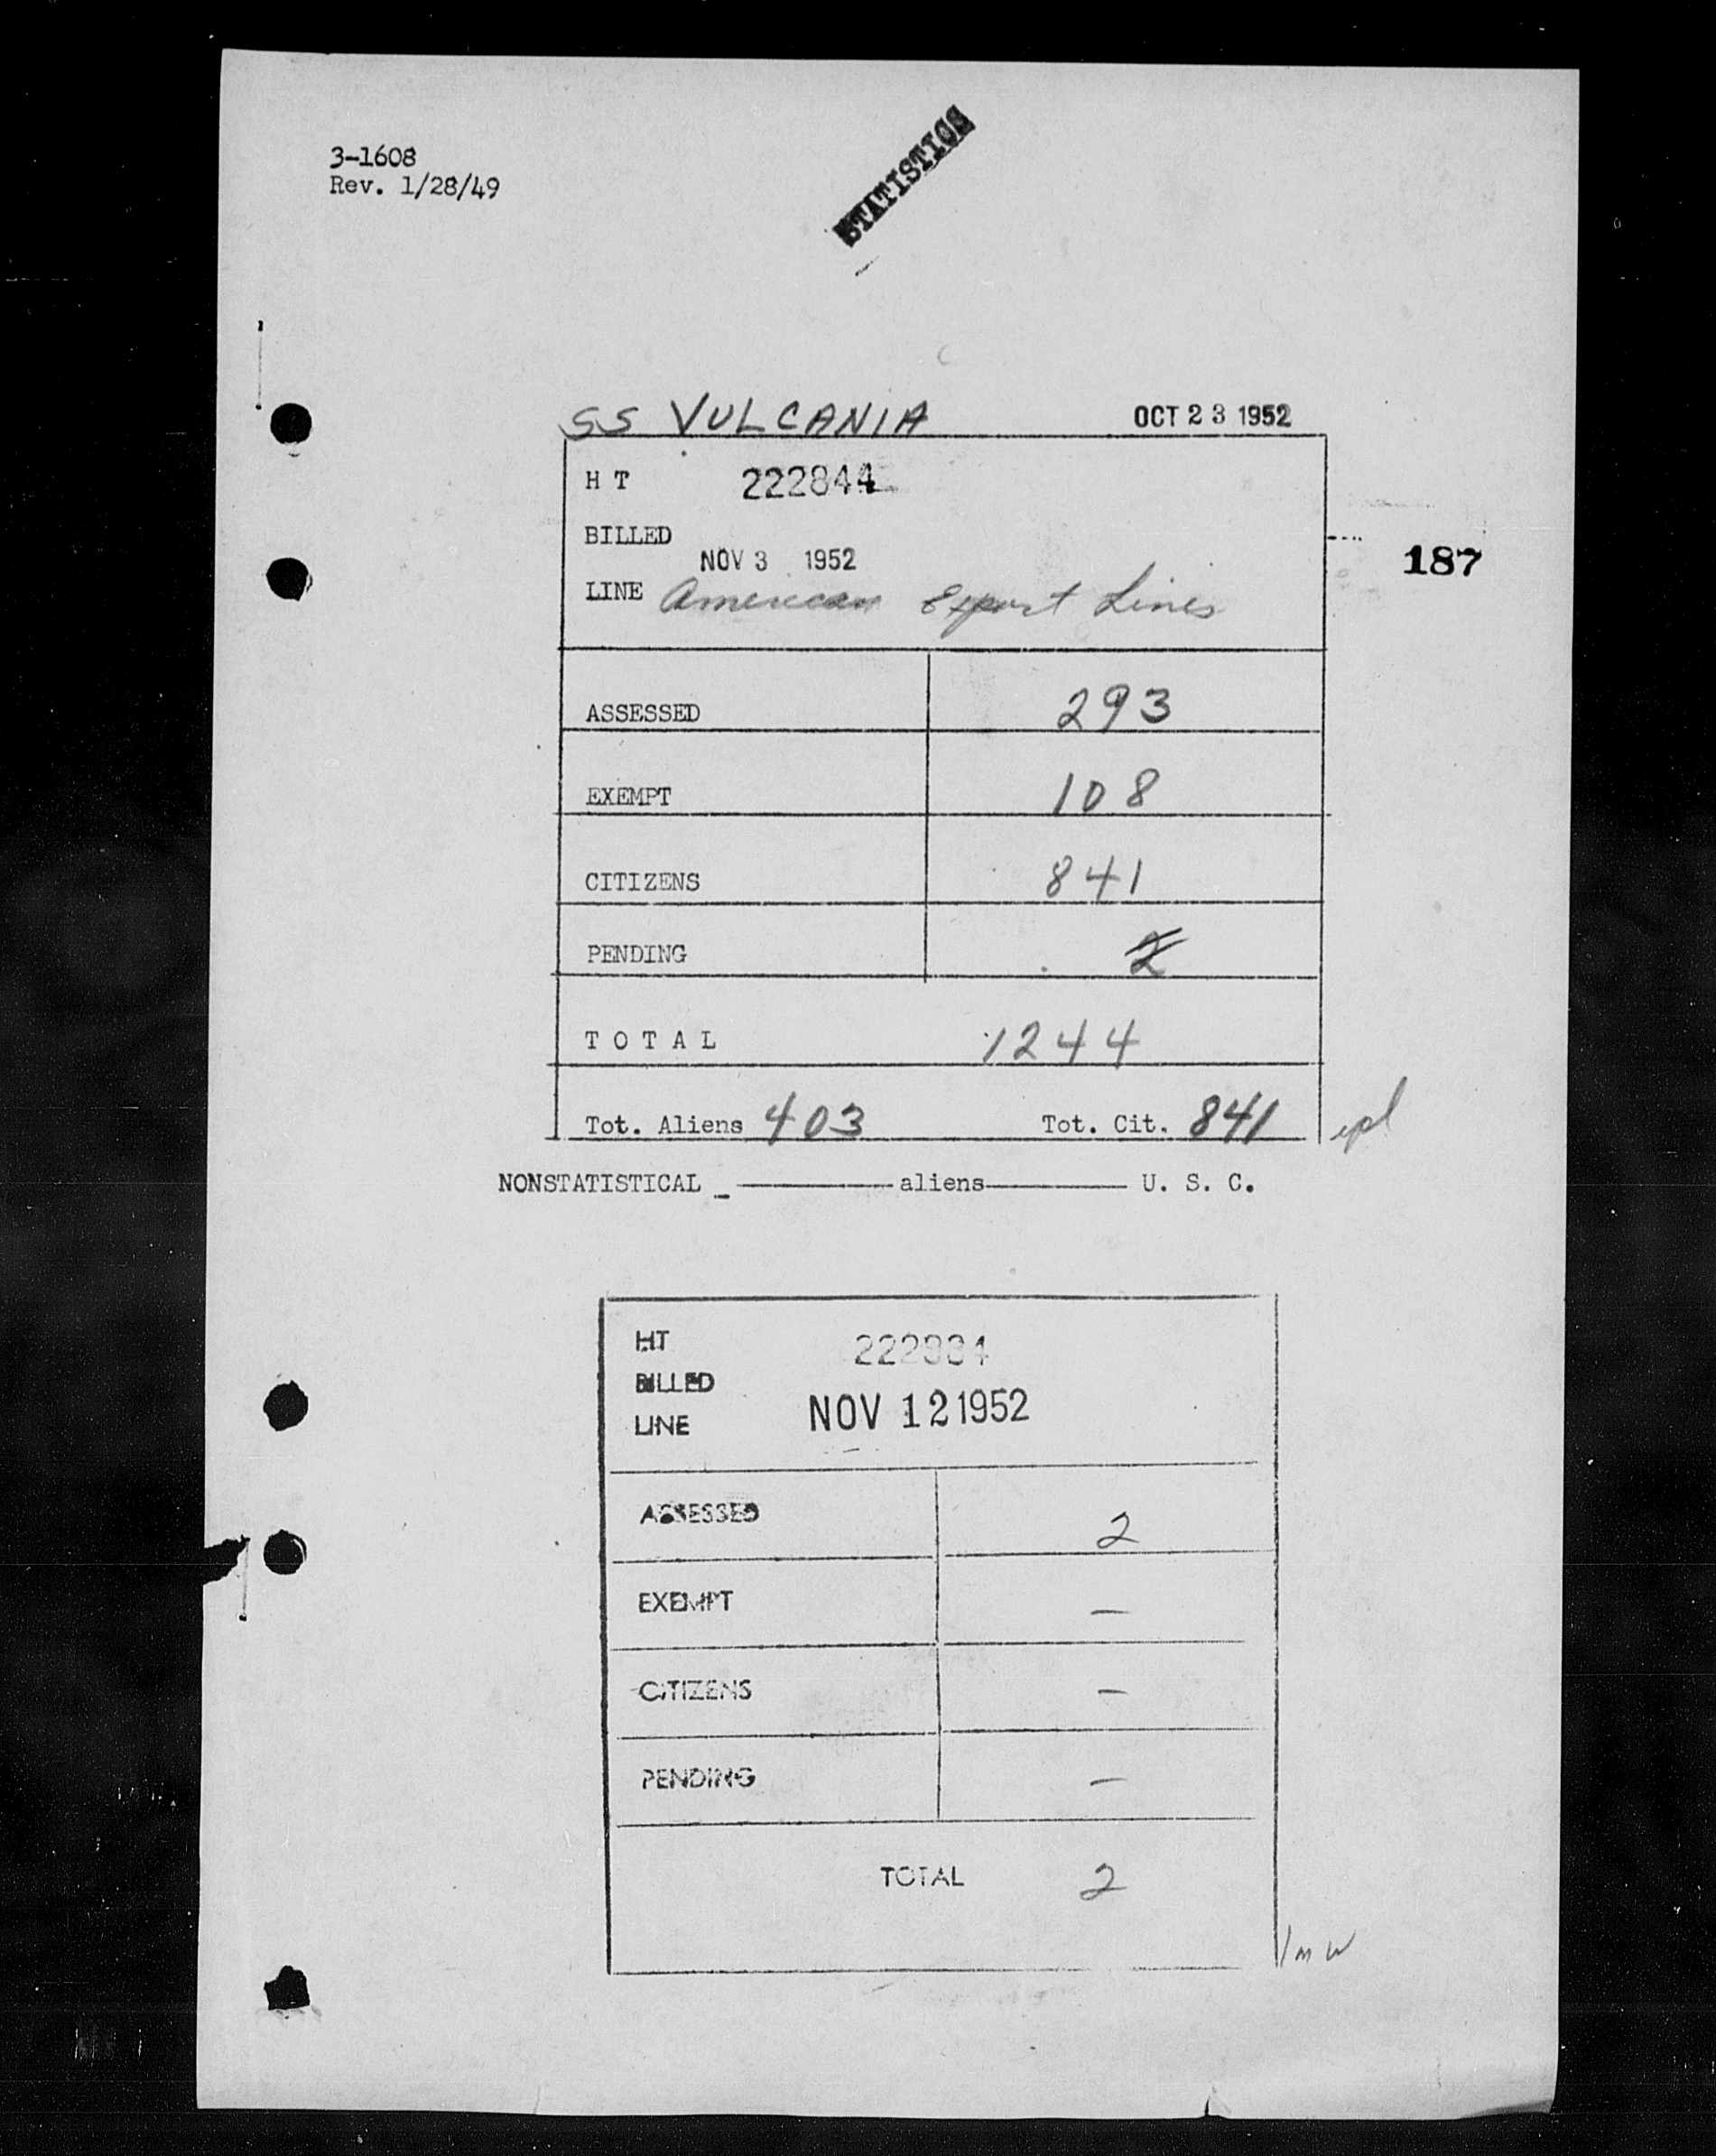 3-1608
Rev. 1/28/49
STATISTICS
SS VULCANIA OCT 23 1952
H T 222844
BILLED
NOV 3 1952
187
LINE American Export Lines
ASSESSED 293
EXEMPT 108
CITIZENS 841
PENDING 2
TOTAL 1244
Tot. Aliens 403 Tot. Cit. 841
NONSTATISTICAL aliens U. S. C.
HT
BILLED
LINE NOV 12 1952
ASSESSED 2
EXEMPT —
CITIZENS —
PENDING —
TOTAL 2